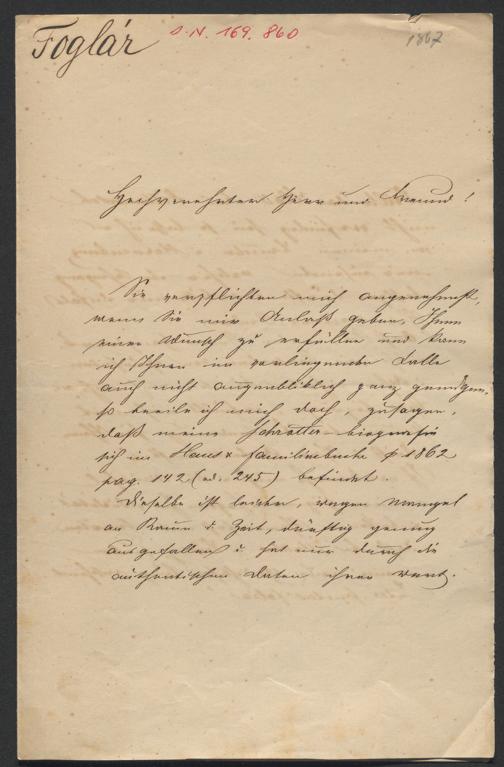 Foglár
I. N. 169.860
1867
Hochverehrter Herr und Freund!
Sie verpflichten mich angenehmst,
wenn Sie mir Anlaß geben, Ihnen
einen Wunsch zu erfüllen und kann
ich Ihnen im vorliegenden Falle
auch nicht augenbliklich ganz genügen,
so beeile ich mich doch, zu sagen,
daß meine Schrötter-biografie
sich im Haus & Familienbuche p 1862
pag. 142 (ad. 245) befindet.
Dieselbe ist leider, wegen Mangel
an Raum & Zeit, dürftig genug
ausgefallen & hat nur durch die
authentischen Daten ihren Wert.